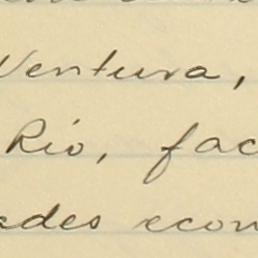 Ventura,
Rio, fac
ades econ